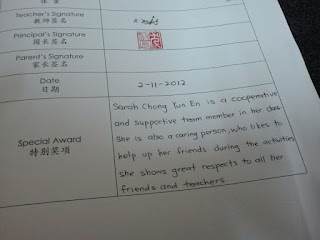 Teacher's Signature
教师签名
Principal's Signature
园长签名
Parent's Signature
家长签名
Date
日期
2-11-2012
Special Award
特别奖项
Sarah Chong Yun En is a cooperative
and supportive team member in her class
She is also a caring person, who likes to
help up her friends during the activities
she shows great respects to all her
friends and teachers